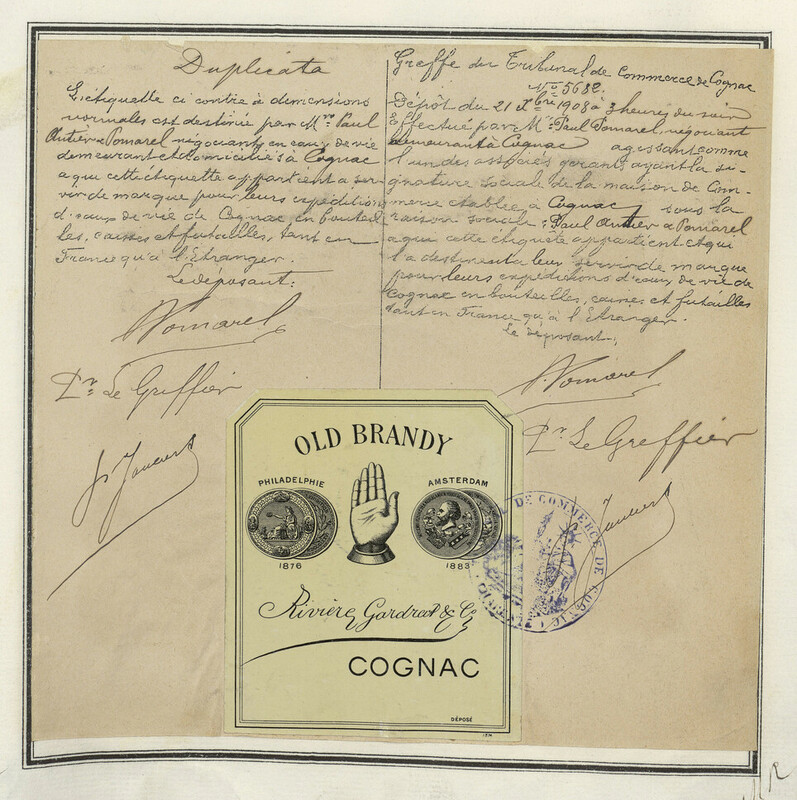 Duplicata
L'étiquette ci contre à dimensions
normales est destinée par Mr. Paul
Autier & Pomarel négociants en eaux de vie
demeurant et domiciliés à Cognac
a qui cette étiquette appartient a ser
vir de marque pour leurs expéditions
d'eaux de vie de Cognac, en bouteil
les, caisses et futailles, tant en
France qu'à l'Etranger.
Le déposant:
Pomarel
Pr. Le Greffier
Greffe du Tribunal de Commerce de Cognac
No. 5682.
Dépôt du 21 Xbre 1908 à 3 heures du soir
Effectué par Mr. Paul Pomarel, négociant
demeurant à Cognac agissant comme
l'un des associés gérants ayant la si-
gnature sociale de la maison de Com-
merce établie à Cognac sous la
raison sociale: Paul Autier & Pomarel
a qui cette étiquete appartient et qui
l'a destine à leur servir de marque
pour leurs expéditions d'eaux de vie de
Cognac en bouteilles, caisses et futailles
tant en France qu'à l'Etranger.
Le déposant:
Pomarel
Pr. Le Greffier
OLD BRANDY
PHILADELPHIE
AMSTERDAM
1876
1883
Rivière Gardrat & Co
COGNAC
DÉPOSÉ
DE COMMERCE DE COGNAC